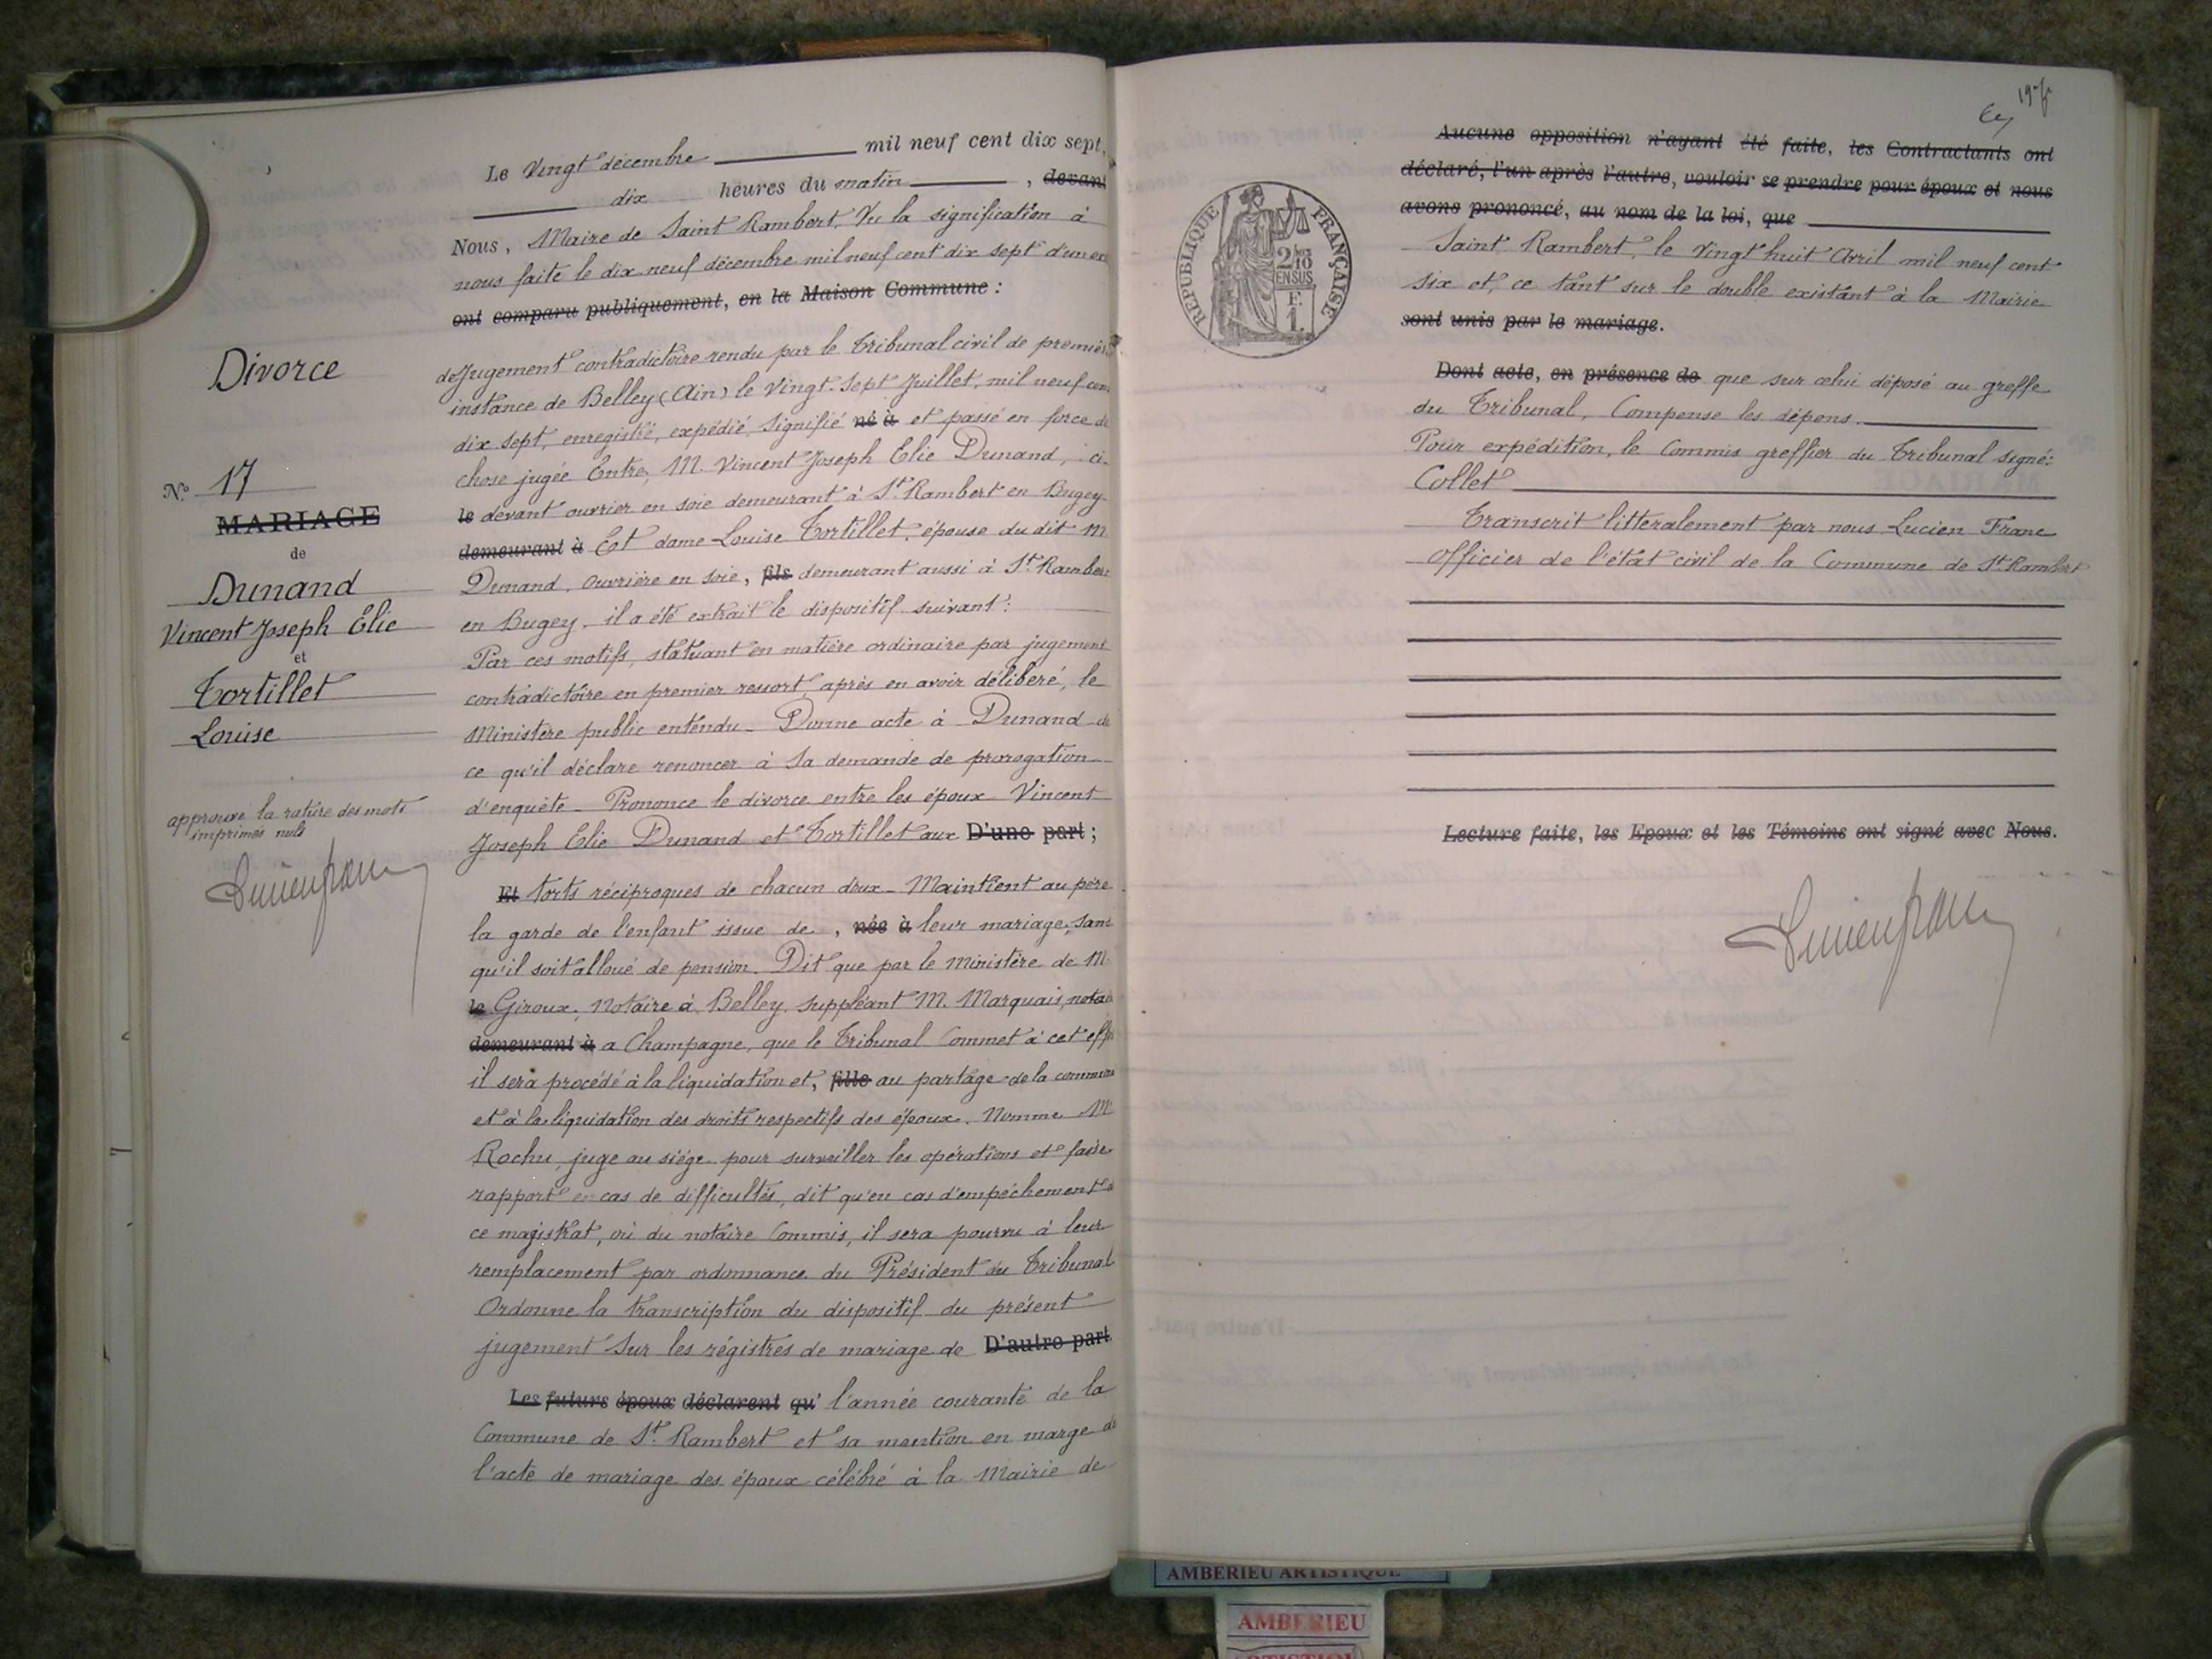 Divorce
N° 17
MARIAGE
de
Dunand
Vincent Joseph Elie
et
Tortillet
Louise
approuvé la rature des mots
imprimés nuls
Le Vingt décembre mil neuf cent dix sept,
dix heures du matin, devant
Nous, Maire de Saint Rambert, Vu la signification à
nous faite le dix neuf décembre mil neuf cent dix sept d'un ex
ont comparu publiquement, en la Maison Commune :
de Jugement contradictoire rendu par le Tribunal civil de première
instance de Belley (Ain) le Vingt Sept Juillet, mil neuf cent
dix sept, enregistré, expédié, signifié né à et passé en force de
chose jugée Entre, M. Vincent Joseph Elie Dunand, ci-
le devant ouvrier en soie demeurant à St. Rambert en Bugey
demeurant à Et dame Louise Tortillet, épouse du dit M
Dunand, ouvrière en soie, fils demeurant aussi à St. Rambert
en Bugey. il a été extrait le dispositif suivant :
Par ces motifs, statuant en matière ordinaire par jugement
contradictoire en premier ressort, après en avoir délibéré, le
Ministère public entendu - Donne acte à Dunand de
ce qu'il déclare renoncer à sa demande de prorogation
d'enquête - Prononce le divorce entre les époux Vincent
Joseph Elie Dunand et Tortillet aux D'une part ;
Et torts réciproques de chacun d'eux - Maintient au père
la garde de l'enfant issue de, née à leur mariage, sans
qu'il soit alloué de pension. Dit que par le Ministère de M.
le Giroux, Notaire à Belley, suppléant M. Marquais, nota
demeurant à a Champagne, que le Tribunal Commet à cet effet
il sera procédé à la liquidation et, fille au partage de la commun
et à la liquidation des droits respectifs des époux. Nomme M
Rochu, juge au siège pour surveiller les opérations et faire
rapport en cas de difficultés, dit qu'en cas d'empêchement d
ce magistrat, où du notaire Commis, il sera pourvu à leur
remplacement par ordonnance du Président du Tribunal
Ordonne la transcription du dispositif du présent
jugement Sur les régistres de mariage de D'autre part.
Les futurs époux déclarent qu' l'année courante de la
Commune de St. Rambert et sa mention en marge de
l'acte de mariage des époux célébré à la Mairie de
Aucune opposition n'ayant été faite, les Contractants ont
déclaré, l'un après l'autre, vouloir se prendre pour époux et nous
avons prononcé, au nom de la loi, que
REPUBLIQUE FRANÇAISE
2/10
EN SUS
F.
1.
Saint Rambert, le Vingt huit Avril mil neuf cent
six et, ce tant sur le double existant à la Mairie
sont unis par le mariage.
Dont acte, en présence de que sur celui déposé au greffe
du Tribunal, Compense les dépens.
Pour expédition, le Commis greffier du Tribunal signé :
Collet
Transcrit littéralement par nous Lucien Franc
Officier de l'état civil de la Commune de St Rambert
Lecture faite, les Epoux et les Témoins ont signé avec Nous.
AMBERIEU ARTISTIQUE
AMBERIEU